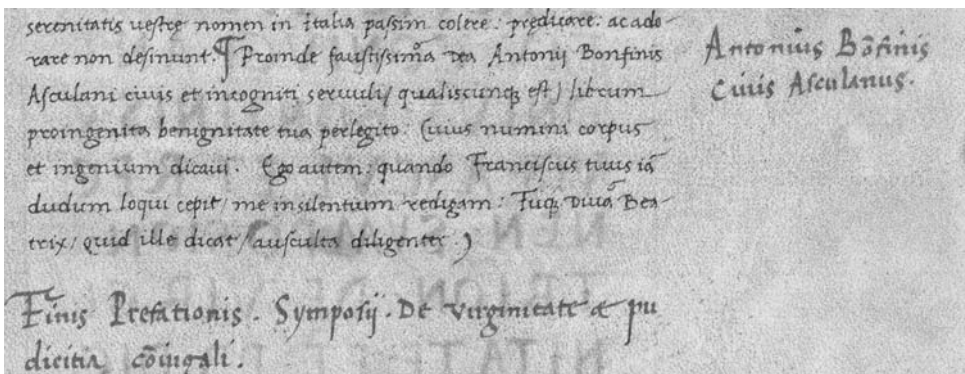 serenitatis uestrę nomen in Italia passim colere: prędicare: ac ado-
rare non desinunt. ¶ Proinde faustissima dea Antonij Bonfinis
Asculani ciuis et incogniti seruuli / qualiscunqꝫ est / librum
proingenita benignitate tua perlegito: Cuius numini corpus
et ingenium dicaui. Ego autem: quando Franciscus tuus iā
dudum loqui cepit / me insilentium redigam: Tuqꝫ Diua Bea-
trix / quid ille dicat / ausculta diligenter.)
Antonius Bōfinis
Ciuis Asculanus.
Finis Prefationis. Symposij. De Virginitate & pu
dicitia cōiugali.